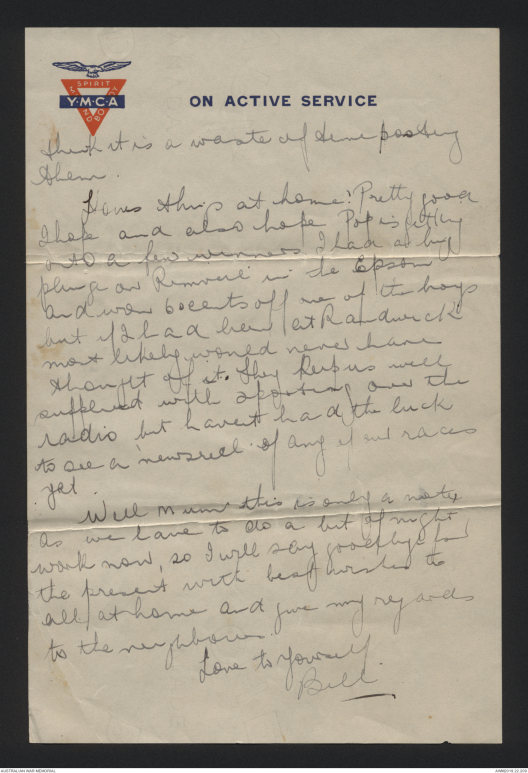 SPIRIT
Y·M·C·A
MIND
BODY
ON ACTIVE SERVICE
think it is a waste of time posting
them.
Hows things at home? Pretty good
I hope and also hope Pop is getting
onto a few winners. I had a big
plunge on Rimveil in the Epsom
and won 60 cents off one of the boys
but if I had been at Randwick
most likely would never have
thought of it. They keep us well
supplied with sporting over the
radio but havent had the luck
to see a newsreel of any of our races
yet.
Well Mum this is only a note
as we have to do a bit of night
work now, so I will say goodbye for
the present with best wishes to
all at home and give my regards
to the neighbours.
Love to Yourself.
Bill.
AUSTRALIAN WAR MEMORIAL